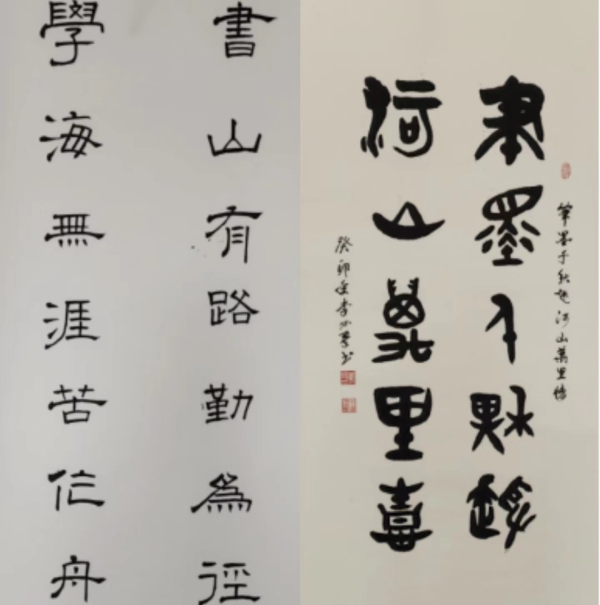 書山有路勤為徑
學海無涯苦作舟
筆墨千秋
河山萬里喜
筆墨千秋 河山萬里
癸卯 李 书